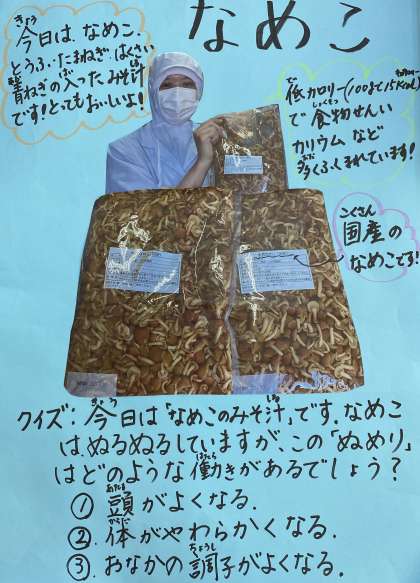 なめこ
今日は、なめこ、
とうふ、たまねぎ、はくさい
青ねぎの入ったみそ汁
です！とってもおいしいよ！
低カロリー(100gで15kcal)
で食物せんい
カリウムなど
多くふくまれています！
国産の
なめこです！
クイズ：今日は「なめこのみそ汁」です。なめこ
は、ぬるぬるしていますが、この「ぬめり」
はどのような働きがあるでしょう？
① 頭がよくなる。
②. 体がやわらかくなる.
③. おなかの調子がよくなる.